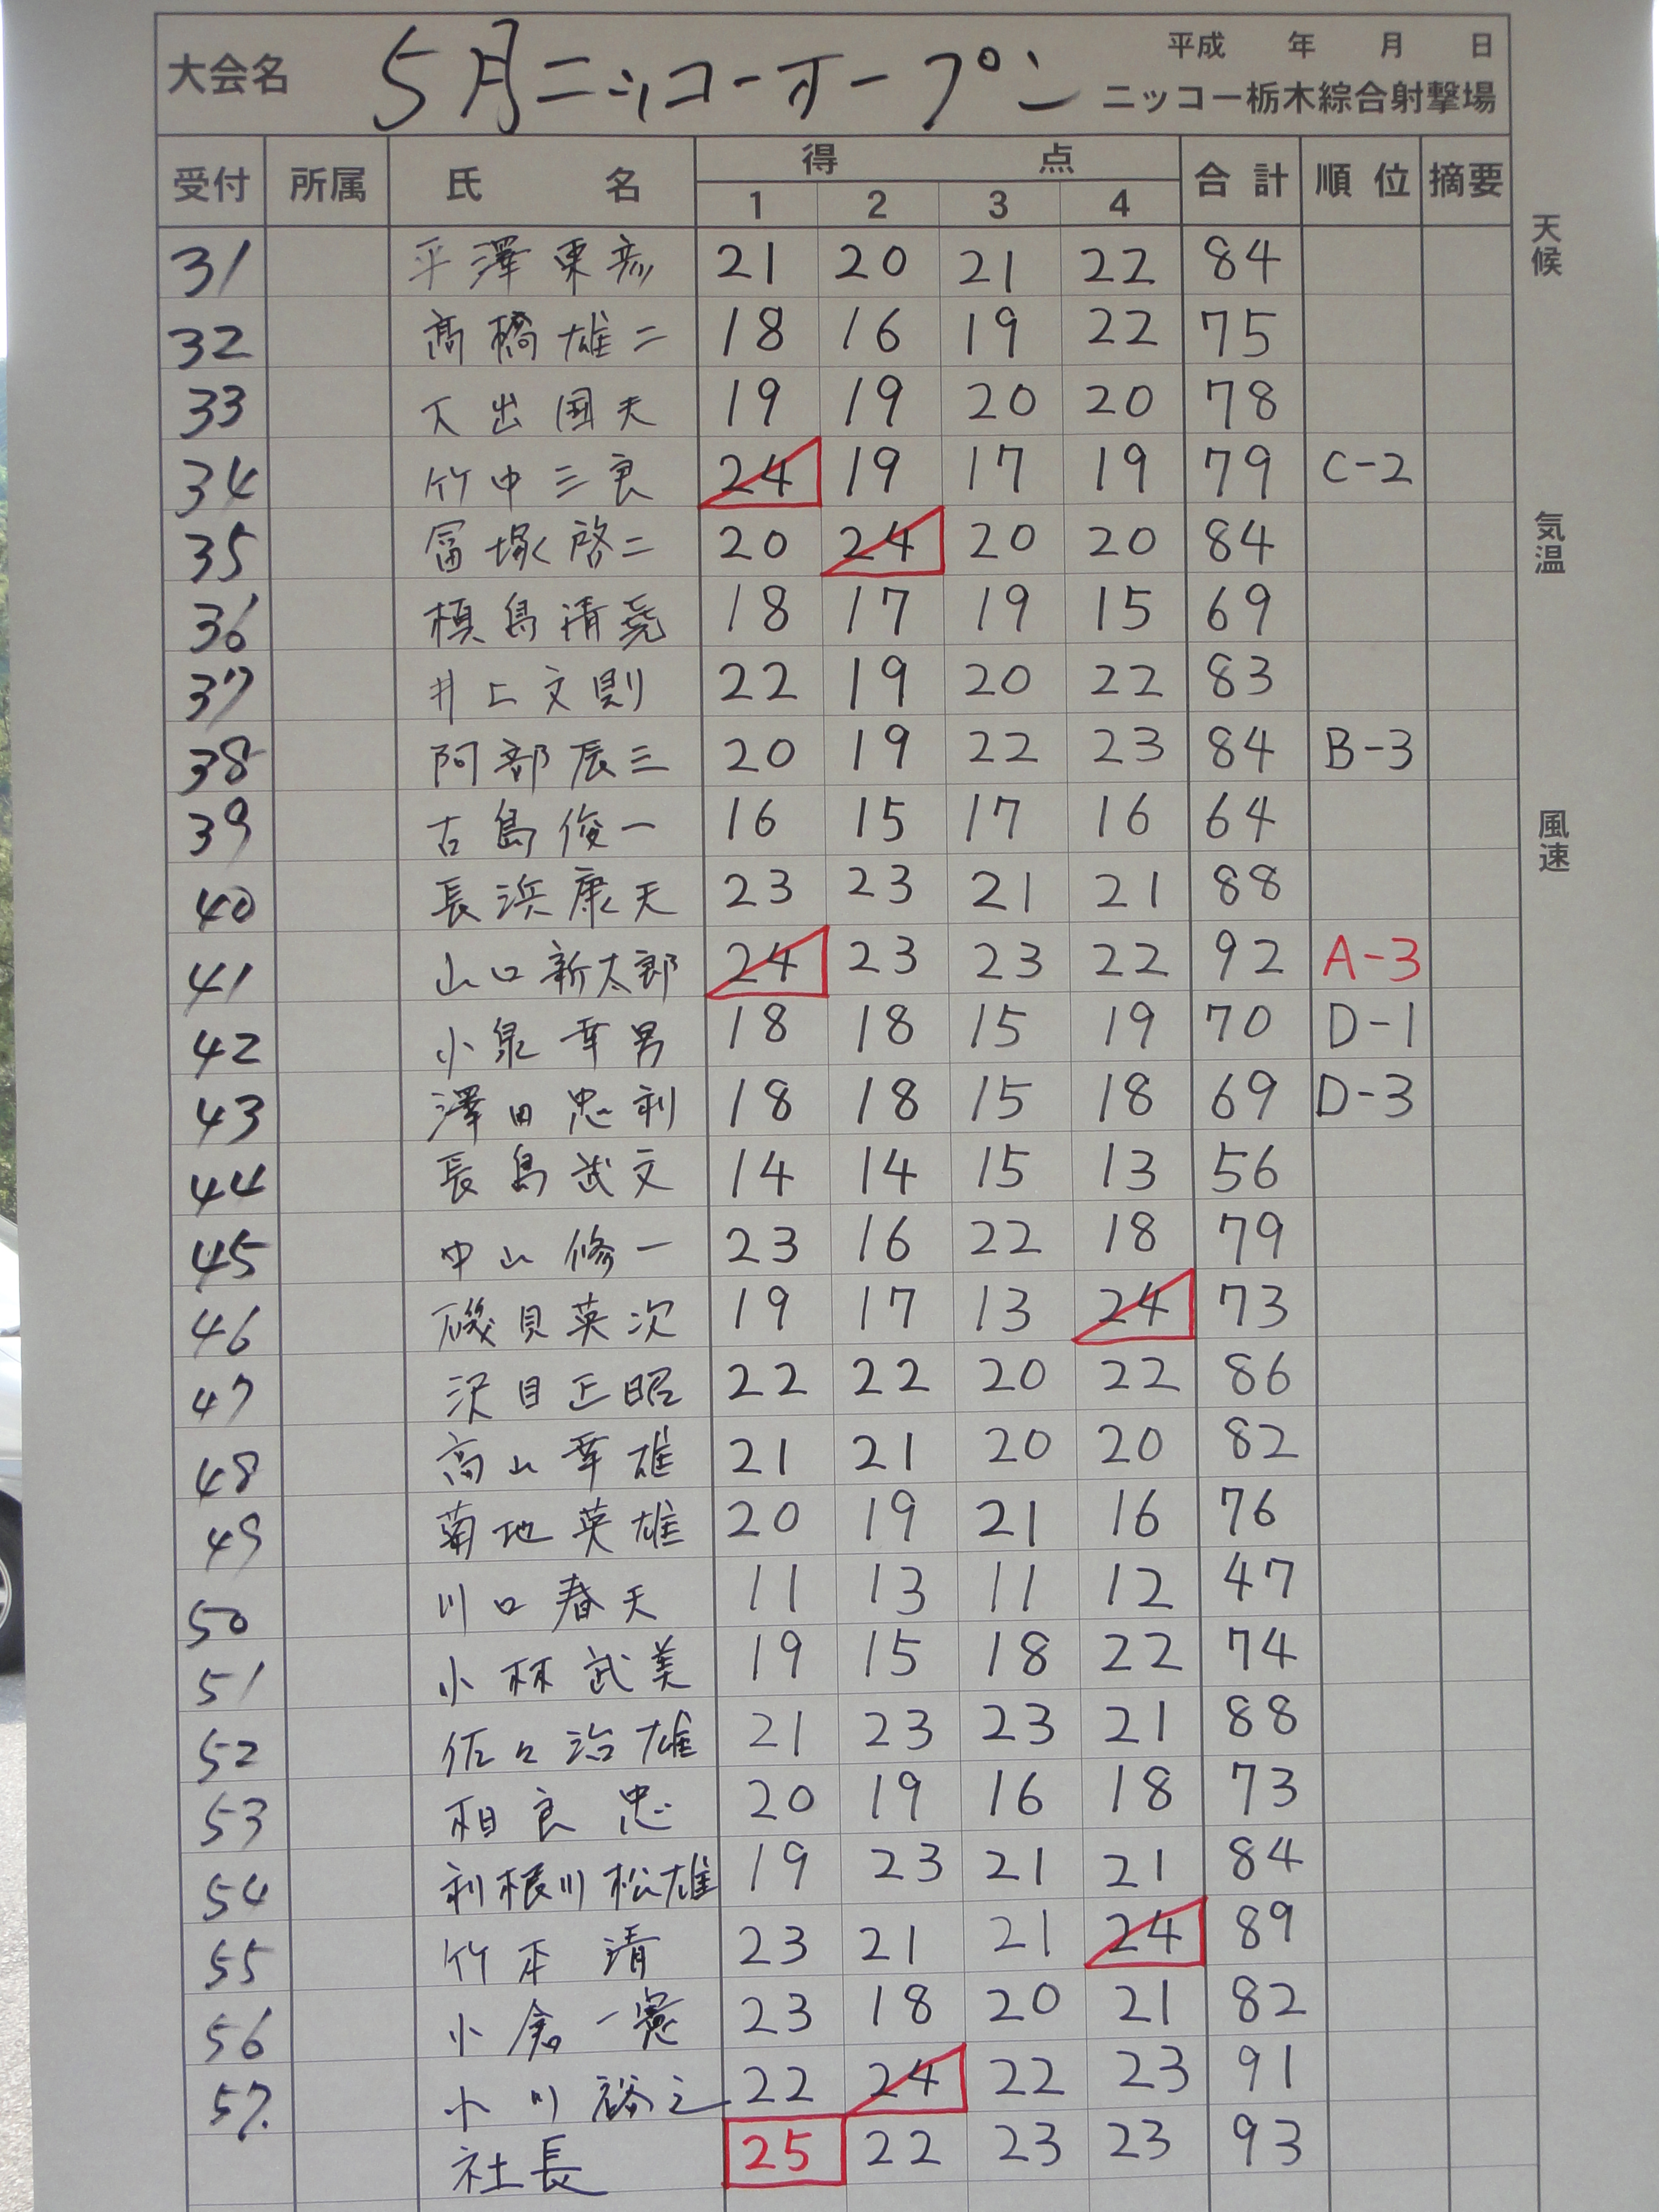 大会名 5月ニッコーオープン 平成 年 月 日
ニッコー栃木綜合射撃場
受付 所属 氏 名 得 点 合計 順位 摘要
1 2 3 4
天候
31 平澤東彦 21 20 21 22 84
32 髙橋雄二 18 16 19 22 75
33 人出国夫 19 19 20 20 78
34 竹中三良 24 19 17 19 79 C-2
気温
35 冨塚啓二 20 24 20 20 84
36 槙島清堯 18 17 19 15 69
37 井上文則 22 19 20 22 83
38 阿部辰三 20 19 22 23 84 B-3
風速
39 古島俊一 16 15 17 16 64
40 長浜康夫 23 23 21 21 88
41 山口新太郎 24 23 23 22 92 A-3
42 小泉幸男 18 18 15 19 70 D-1
43 澤田忠利 18 18 15 18 69 D-3
44 長島武文 14 14 15 13 56
45 中山修一 23 16 22 18 79
46 磯貝英次 19 17 13 24 73
47 沢目正昭 22 22 20 22 86
48 高山幸雄 21 21 20 20 82
49 菊地英雄 20 19 21 16 76
50 川口春夫 11 13 11 12 47
51 小林武美 19 15 18 22 74
52 佐々治雄 21 23 23 21 88
53 相良忠 20 19 16 18 73
54 利根川松雄 19 23 21 21 84
55 竹本清 23 21 21 24 89
56 小倉一憲 23 18 20 21 82
57. 小川裕之 22 24 22 23 91
社長 25 22 23 23 93